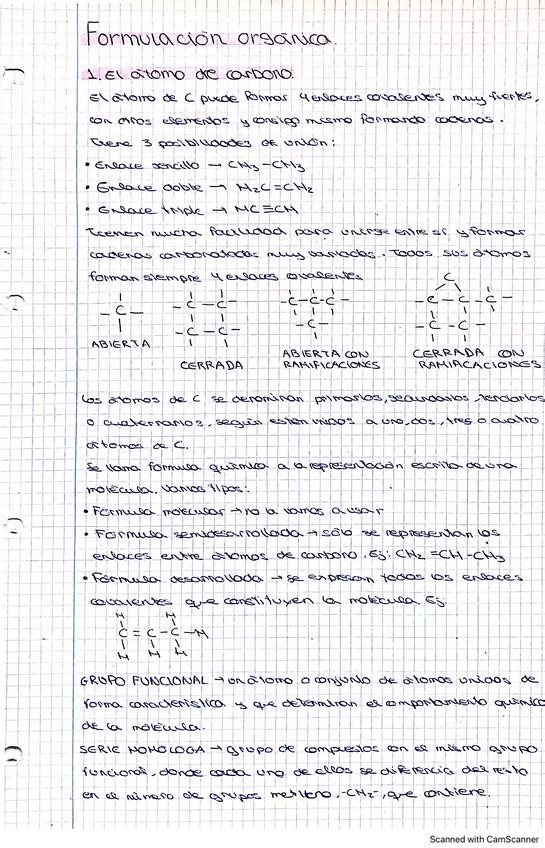 Formulación orgánica.
1. El átomo de carbono.
El átomo de C puede formar 4 enlaces covalentes muy fuertes,
con otros elementos y consigo mismo formando cadenas.
Tiene 3 posibilidades de unión:
• Enlace sencillo → CH₃-CH₃
• Enlace doble → H₂C=CH₂
• Enlace triple → HC≡CH
Tienen mucha facilidad para unirse entre sí y formar
cadenas carbonatadas muy variadas. Todos sus átomos
forman siempre 4 enlaces covalentes
C
-C- -C-C- -C-C-C- -C-C-C-
-C-C- -C- -C-C-
ABIERTA CERRADA ABIERTA CON RAMIFICACIONES CERRADA CON RAMIFICACIONES
Los átomos de C se denominan primarios, secundarios, terciarios
o cuaternarios, según estén unidos a uno, dos, tres o cuatro
átomos de C.
Se llama fórmula química a la representación escrita de una
molécula. Varios tipos:
• Fórmula molecular → no la vamos a usar
• Fórmula semidesarrollada → sólo se representan los
enlaces entre átomos de carbono. Ej: CH₂=CH-CH₃
• Fórmula desarrollada → se expresan todos los enlaces
covalentes que constituyen la molécula. Ej:
H H
C=C-C-H
H H H
GRUPO FUNCIONAL → un átomo o conjunto de átomos unidos de
forma característica y que determinan el comportamiento químico
de la molécula.
SERIE HOMOLOGA → grupo de compuestos con el mismo grupo
funcional, donde cada uno de ellos se diferencia del resto
en el número de grupos metileno, -CH₂-, que contiene.
Scanned with CamScanner